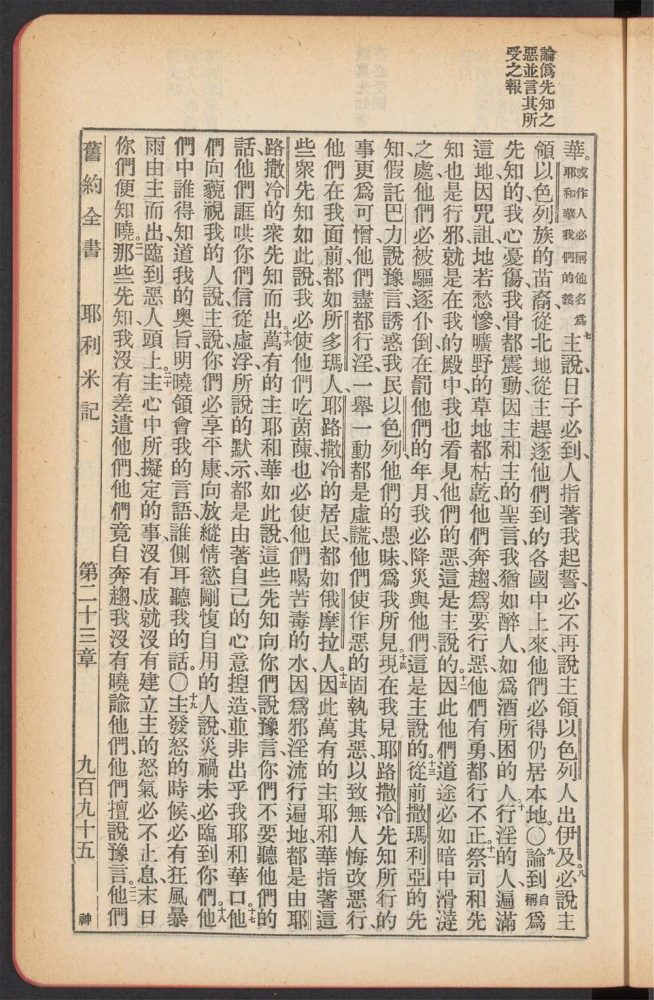 論僞先知之
惡並言其所
受之報
華。或作人必稱他名爲
耶和華我們的義
七主說、日子必到、人指著我起誓、必不再說、主領以色列人出伊及、八必說主
領以色列族的苗裔、從北地、從主趕逐他們到的各國中上來、他們必得仍居本地。〇九論到自稱爲
先知的、我心憂傷、我骨都震動、因主和主的聖言、我猶如醉人、如爲酒所困的人。十行淫的人、遍滿
這地、因咒詛地若愁慘、曠野的草地都枯乾、他們奔趨爲要行惡、他們有勇、都行不正。十一祭司和先
知也是行邪、就是在我的殿中、我也看見他們的惡、這是主說的。十二因此他們道途、必如暗中滑澾
之處、他們必被驅逐、仆倒在罰他們的年月、我必降災與他們、這是主說的。十三從前撒瑪利亞的先
知、假託巴力說豫言、誘惑我民以色列、他們的愚昧、爲我所見。十四現在我見耶路撒冷先知所行的
事、更爲可憎、他們盡都行淫、一舉一動都是虛謊、他們使作惡的固執其惡、以致無人悔改惡行、
他們在我面前、都如所多瑪人、耶路撒冷的居民、都如俄摩拉人。十五因此萬有的主耶和華、指著這
些衆先知如此說、我必使他們吃茵蔯、也必使他們喝苦毒的水、因爲邪淫流行遍地、都是由耶
路撒冷的衆先知而出。十六萬有的主耶和華如此說、這些先知向你們說豫言、你們不要聽他們的
話、他們誆哄你們信從虛浮、所說的默示、都是由著自己的心意揑造、並非出乎我耶和華口。十七他
們向藐視我的人說、主說、你們必享平康、向放縱情慾剛愎自用的人說、災禍未必臨到你們。十八他
們中誰得知道我的奧旨、明曉領會我的言語、誰側耳聽我的話。〇十九主發怒的時候、必有狂風暴
雨由主而出、臨到惡人頭上。二十主心中所擬定的事、沒有成就、沒有建立、主的怒氣必不止息、末日
你們便知曉。二一那些先知、我沒有差遣他們、他們竟自奔趨、我沒有曉諭他們、他們擅說豫言。二二他們
舊約全書　耶利米記　第二十三章　九百九十五　神